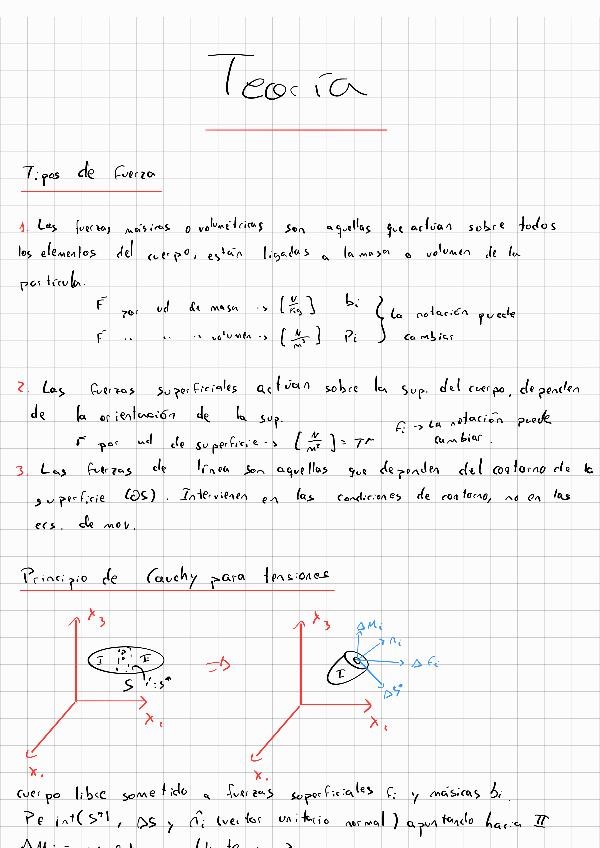 Teoría
Tipos de fuerza
1. Las fuerzas másicas o volumétricas son aquellas que actúan sobre todos
los elementos del cuerpo, están ligadas a la masa o volumen de la
partícula.
F por ud de masa -> [N/kg] bi } La notación puede
F " " " volumen -> [N/m³] Pi } cambiar
2. Las fuerzas superficiales actúan sobre la sup. del cuerpo, dependen
de la orientación de la sup.
fi -> La notación puede
cambiar.
F por ud de superficie -> [N/m²] =
3. Las fuerzas de línea son aquellas que dependen del contorno de la
superficie (∂S). Intervienen en las condiciones de contorno, no en las
ecs. de mov.
Principio de Cauchy para tensiones
X3
I P II
S
S*
X2
X1
=>
X3
ΔMi
ni
ΔFi
ΔS*
I
X2
X1
cuerpo libre sometido a fuerzas superficiales fi y másicas bi.
P∈ int(S*), ΔS y n̂i (vector unitario normal) apuntando hacia II